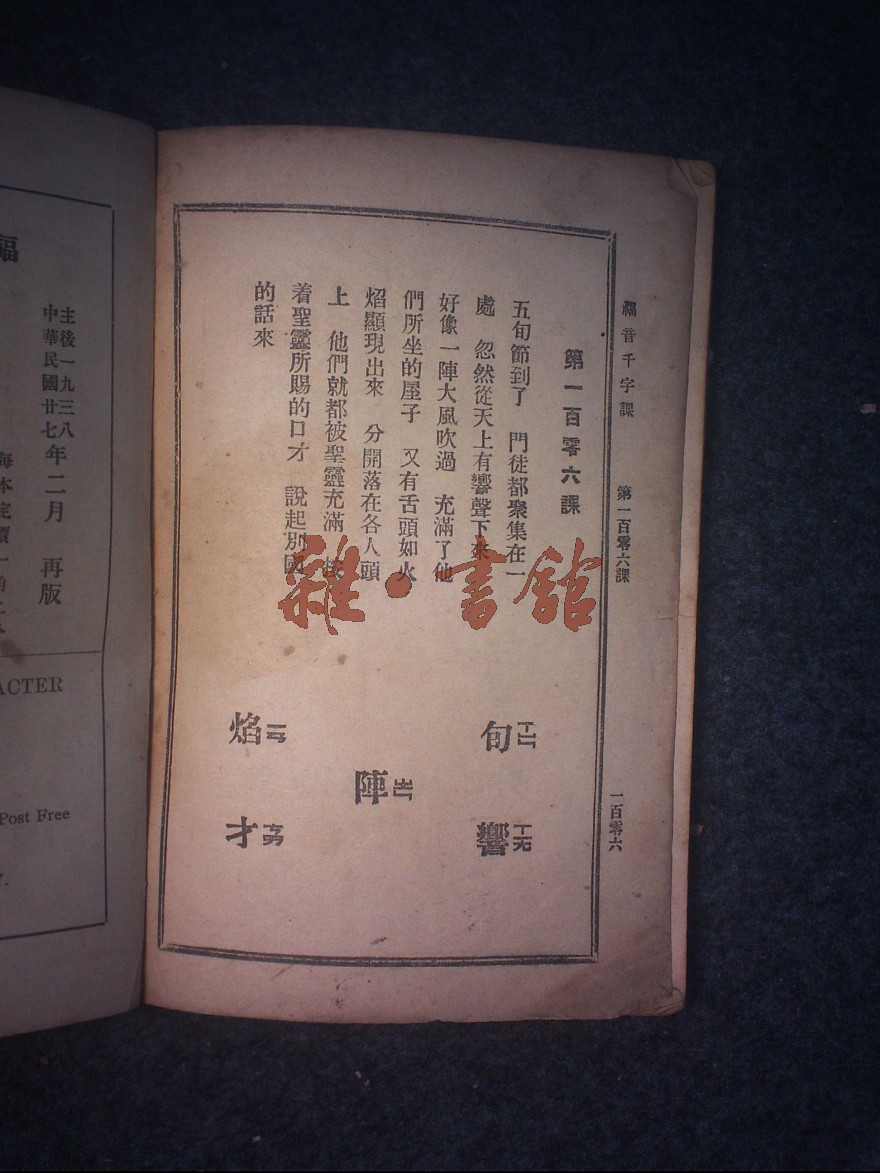 福音千字課 第一百零六課 一百零六
第一百零六課
五旬節到了 門徒都聚集在一
處 忽然從天上有響聲下來
好像一陣大風吹過 充滿了他
們所坐的屋子 又有舌頭如火
焰顯現出來 分開落在各人頭
上 他們就都被聖靈充滿 按
着聖靈所賜的口才 說起別國
的話來
旬 ㄒㄩㄣ
響 ㄒㄧㄤ
陣 ㄓㄣ
焰 ㄧㄢ
才 ㄘㄞ
雜·書館
福
主後一九三八
中華民國廿七年二月 再版
每本定價一角
ACTER
Post Free